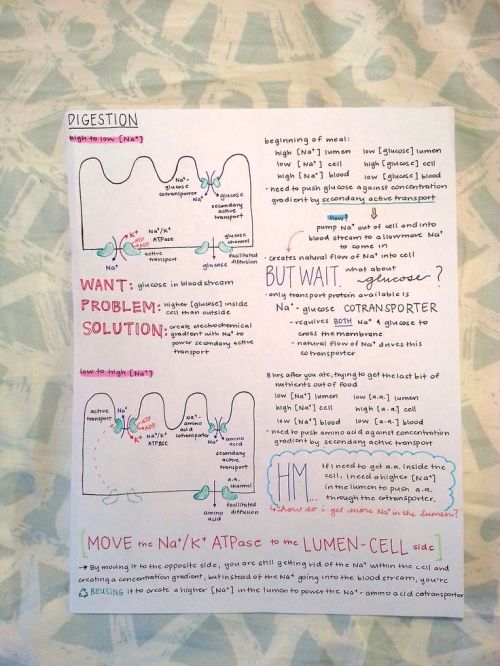 DIGESTION
high to low [Na⁺]
Na⁺
glucose
cotransporter
Na⁺
glucose
secondary
active
transport
K⁺
ATP
ADP
Na⁺/K⁺
ATPase
Na⁺
active
transport
glucose
channel
glucose
facilitated
diffusion
WANT: glucose in blood stream
PROBLEM: higher [glucose] inside
cell than outside
SOLUTION: create electrochemical
gradient with Na⁺ to
power secondary active
transport
beginning of meal:
high [Na⁺] lumen low [glucose] lumen
low [Na⁺] cell high [glucose] cell
high [Na⁺] blood low [glucose] blood
- need to push glucose against concentration
gradient by secondary active transport
how?
pump Na⁺ out of cell and into
blood stream to allow more Na⁺
to come in
- creates natural flow of Na⁺ into cell
BUT WAIT. what about
glucose?
- only transport protein available is
Na⁺-glucose COTRANSPORTER
- requires BOTH Na⁺ & glucose to
cross the membrane
- natural flow of Na⁺ drives this
cotransporter
low to high [Na⁺]
active
transport
Na⁺
ATP
ADP
K⁺
Na⁺/K⁺
ATPase
Na⁺-
amino acid
cotransporter
Na⁺
amino
acid
secondary
active
transport
a.a.
channel
amino
acid
facilitated
diffusion
8 hrs after you ate, trying to get the last bit of
nutrients out of food
low [Na⁺] lumen low [a.a.] lumen
high [Na⁺] cell high [a.a.] cell
low [Na⁺] blood low [a.a.] blood
- need to push amino acid against concentration
gradient by secondary active transport
HM... If I need to get a.a. inside the
cell, I need a higher [Na⁺]
in the lumen to push a.a.
through the cotransporter.
how do i get more Na⁺ in the lumen?
[MOVE the Na⁺/K⁺ ATPase to the LUMEN-CELL side]
→ By moving it to the opposite side, you are still getting rid of the Na⁺ within the cell and
creating a concentration gradient, but instead of the Na⁺ going into the blood stream, you're
REUSING it to create a higher [Na⁺] in the lumen to power the Na⁺-amino acid cotransporter